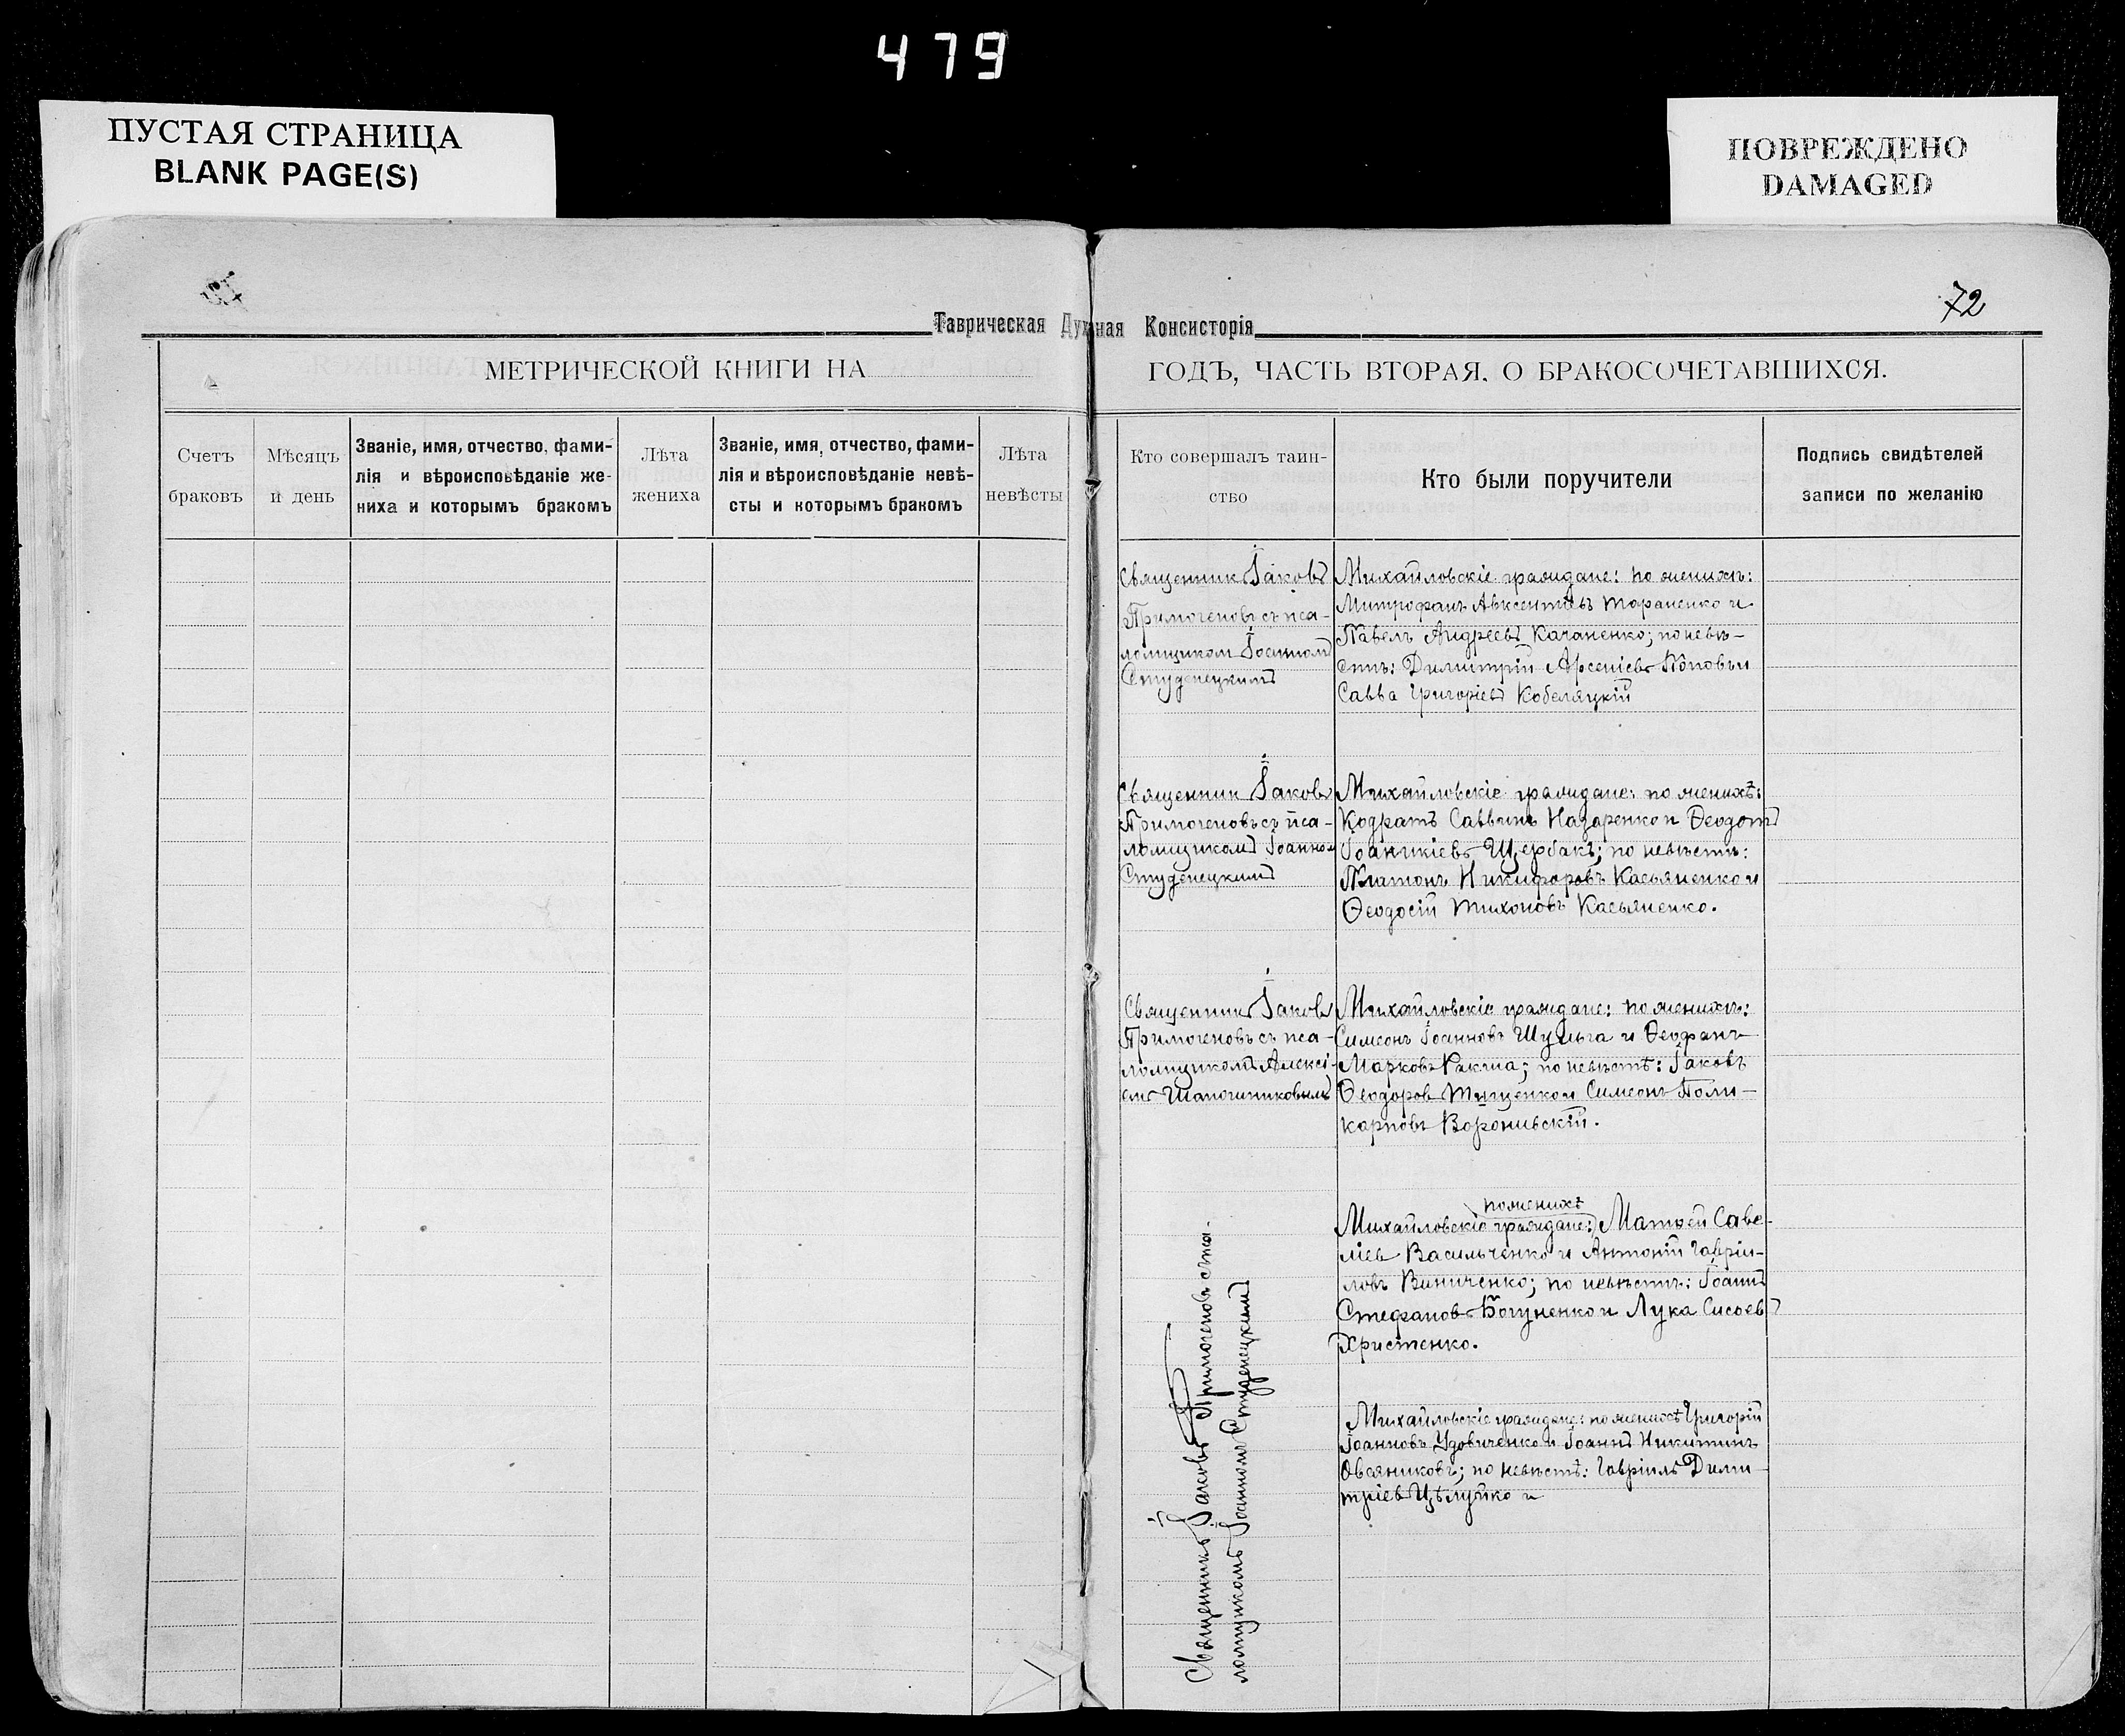 479
ПУСТАЯ СТРАНИЦА
BLANK PAGE(S)
ПОВРЕЖДЕНО
DAMAGED
72
Таврическая Духная Консисторія
МЕТРИЧЕСКОЙ КНИГИ НА
ГОДЪ, ЧАСТЬ ВТОРАЯ, О БРАКОСОЧЕТАВШИХСЯ.
Счетъ
браковъ
Мѣсяцъ
и день
Званіе, имя, отчество, фами-
лія и вѣроисповѣданіе же-
ниха и которымъ бракомъ
Лѣта
жениха
Званіе, имя, отчество, фами-
лія и вѣроисповѣданіе невѣ-
сты и которымъ бракомъ
Лѣта
невѣсты
Кто совершалъ таин-
ство
Кто были поручители
Подпись свидѣтелей
записи по желанію
Священникъ Іаковъ
Примогеновъ съ пса-
ломщикомъ Іоанномъ
Студенецкимъ
Михайловскіе граждане: по женихѣ:
Митрофанъ Авксентіевъ Тараненко и
Павелъ Андреевъ Качаненко; по невѣ-
стѣ: Димитрій Арсеніевъ Поповъ и
Савва Григоріевъ Кобеляцкій
Священник Іаковъ
Примогеновъ съ пса-
ломщикомъ Іоанномъ
Студенецкимъ
Михайловскіе граждане: по женихѣ:
Кодратъ Саввинъ Назаренко и Ѳеодотъ
Іоаникіевъ Щербакъ; по невѣстѣ:
Платонъ Никифоровъ Касьяненко и
Ѳеодосій Тихоновъ Касьяненко.
Священникъ Іаковъ
Примогеновъ съ пса-
ломщикомъ Алексі-
емъ Шапошниковымъ
Михайловскіе граждане: по женихѣ:
Симеонъ Іоанновъ Шульга и Ѳеофанъ
Марковъ Ракша; по невѣстѣ: Іаковъ
Ѳеодоровъ Тищенко и Симеонъ Поли-
карповъ
по женихѣ
Михайловскіе граждане: Матѳей Саве-
ліевъ Васильченко и Антоній Гавріи-
ловъ Виниченко; по невѣстѣ: Іоаннъ
Стефановъ Богуненко и Лука Сисоевъ
Христенко.
Священникъ Іаковъ Примогеновъ съ пса-
ломщикомъ Іоанномъ Студенецкимъ
Михайловскіе граждане: по женихѣ Григорій
Іоанновъ Удовиченко и Іоаннъ Никитинъ
Овсяниковъ; по невѣстѣ: Гавріилъ Дими-
тріевъ Цѣлуйко и